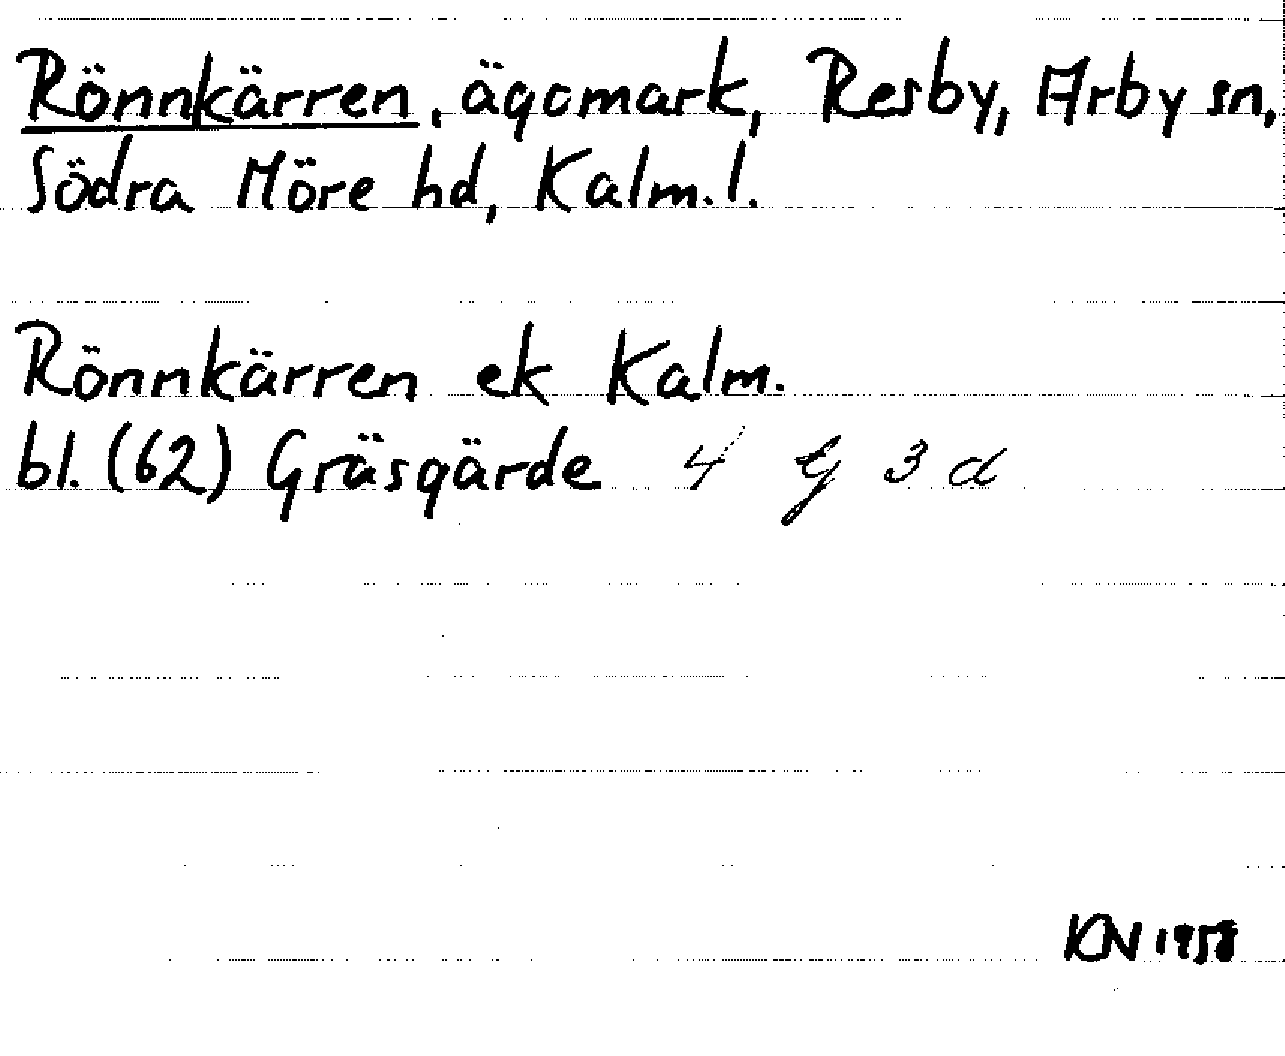 Rönnkärren, ägomark, Resby, Arby sn,
Södra Möre hd, Kalm.l.
Rönnkärren ek Kalm.
bl. (62) Gräsgärde 4 G 3 d
KN 1958